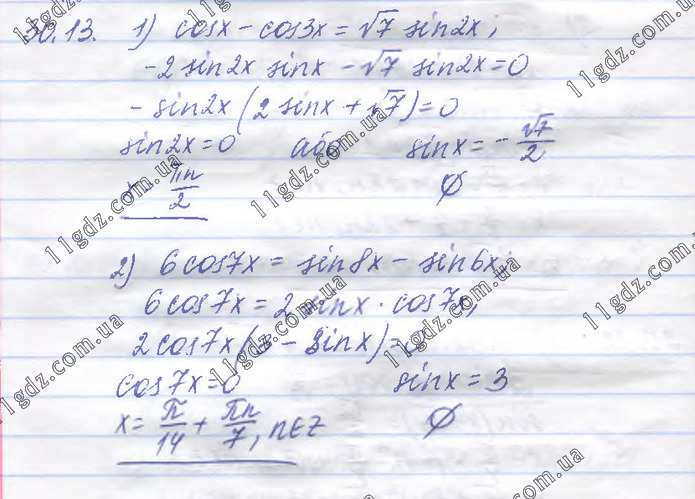 30.13. 1) cosx - cos3x = √7 sin2x;
-2 sin2x sinx - √7 sin2x = 0
- sin2x (2 sinx + √7) = 0
sin2x = 0 або sinx = - √7/2
x = πn/2 ∅
2) 6cos7x = sin8x - sin6x;
6cos7x = 2 sinx · cos7x;
2cos7x (3 - sinx) = 0
cos7x = 0 sinx = 3
x = π/14 + πn/7, n∈Z ∅
11gdz.com.ua
11gdz.com.ua
11gdz.com.ua
11gdz.com.ua
11gdz.com.ua
11gdz.com.ua
11gdz.com.ua
11gdz.com.ua